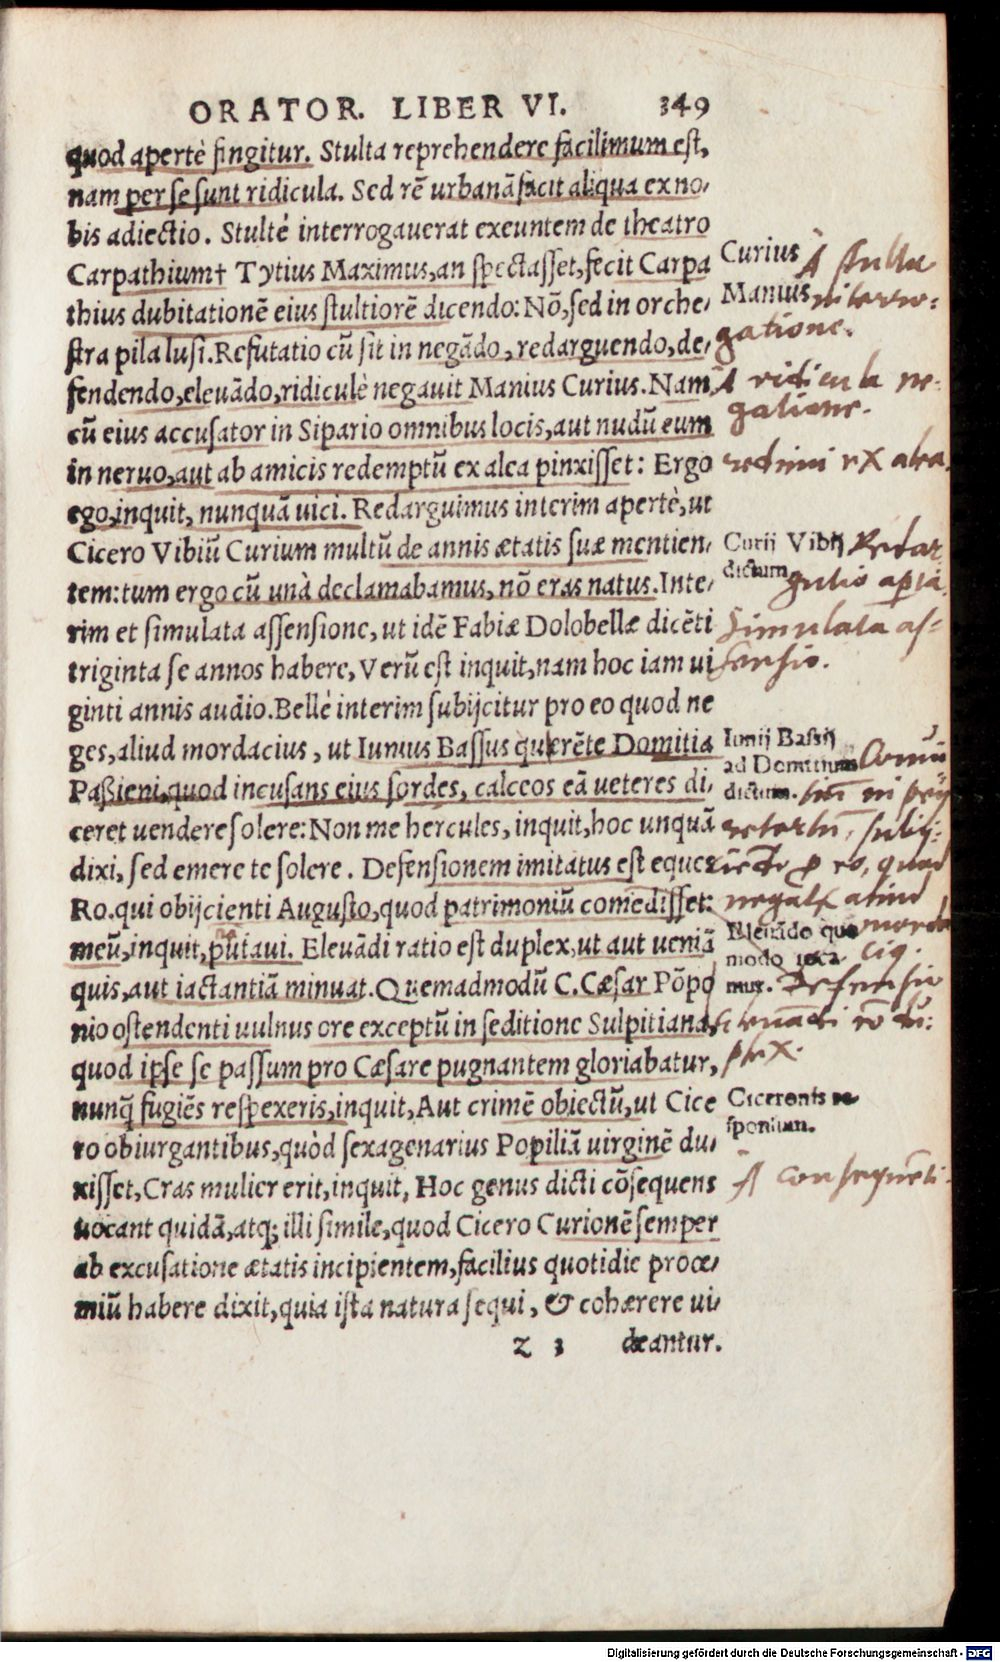 ORATOR. LIBER VI. 349
quod apertè fingitur. Stulta reprehendere facilimum est,
nam per se sunt ridicula. Sed rē urbanā facit aliqua ex no,
bis adiectio. Stultè interrogauerat exeuntem de theatro
Carpathium† Tytius Maximus, an spectasset, fecit Carpa
thius dubitationē eius stultiorē dicendo: Nō, sed in orche,
stra pila lusi. Refutatio cū sit in negādo, redarguendo, de,
fendendo, eleuādo, ridiculè negauit Manius Curius. Nam
cū eius accusator in Sipario omnibus locis, aut nudū eum
in neruo, aut ab amicis redemptū ex alea pinxisset: Ergo
ego, inquit, nunquā uici. Redarguimus interim apertè, ut
Cicero Vibiū Curium multū de annis ætatis suæ mentien,
tem: tum ergo cū unà declamabamus, nō eras natus. Inte,
rim et simulata assensione, ut idē Fabiæ Dolobellæ dicēti
triginta se annos habere, Verū est inquit, nam hoc iam ui
ginti annis audio. Bellè interim subijcitur pro eo quod ne
ges, aliud mordacius, ut Iunius Bassus querēte Domitia
Paßieni, quod incusans eius sordes, calceos eā ueteres di,
ceret uendere solere: Non me hercules, inquit, hoc unquā
dixi, sed emere te solere. Defensionem imitatus est eques
Ro. qui obijcienti Augusto, quod patrimoniū comedisset:
meū, inquit, putaui. Eleuādi ratio est duplex, ut aut ueniā
quis, aut iactantiā minuat. Quemadmodū C. Cæsar Pōpo
nio ostendenti uulnus ore exceptū in seditione Sulpitiana,
quod ipse se passum pro Cæsare pugnantem gloriabatur,
nunq̄ fugiēs respexeris, inquit, Aut crimē obiectū, ut Cice
ro obiurgantibus, quòd sexagenarius Popiliā uirginē du,
xisset, Cras mulier erit, inquit, Hoc genus dicti cōsequens
uocant quidā, atq; illi simile, quod Cicero Curionē semper
ab excusatione ætatis incipientem, facilius quotidie proœ,
miū habere dixit, quia ista natura sequi, & cohærere ui,
z 3 deantur.
Curius
Manius
A stulta
interro:
gatione.
A ridicula ne:
gatione.
redimi ex alea.
Curij Vibij
dictum
Redar
gutio aperta.
Simulata as-
sensio.
Iunij Bassij
ad Domitium
dictum.
Eleuādo quo
modo ioca
mur.
Defensio
plex.
Ciceronis re
sponsum.
A consequēti
Digitalisierung gefördert durch die Deutsche Forschungsgemeinschaft - DFG